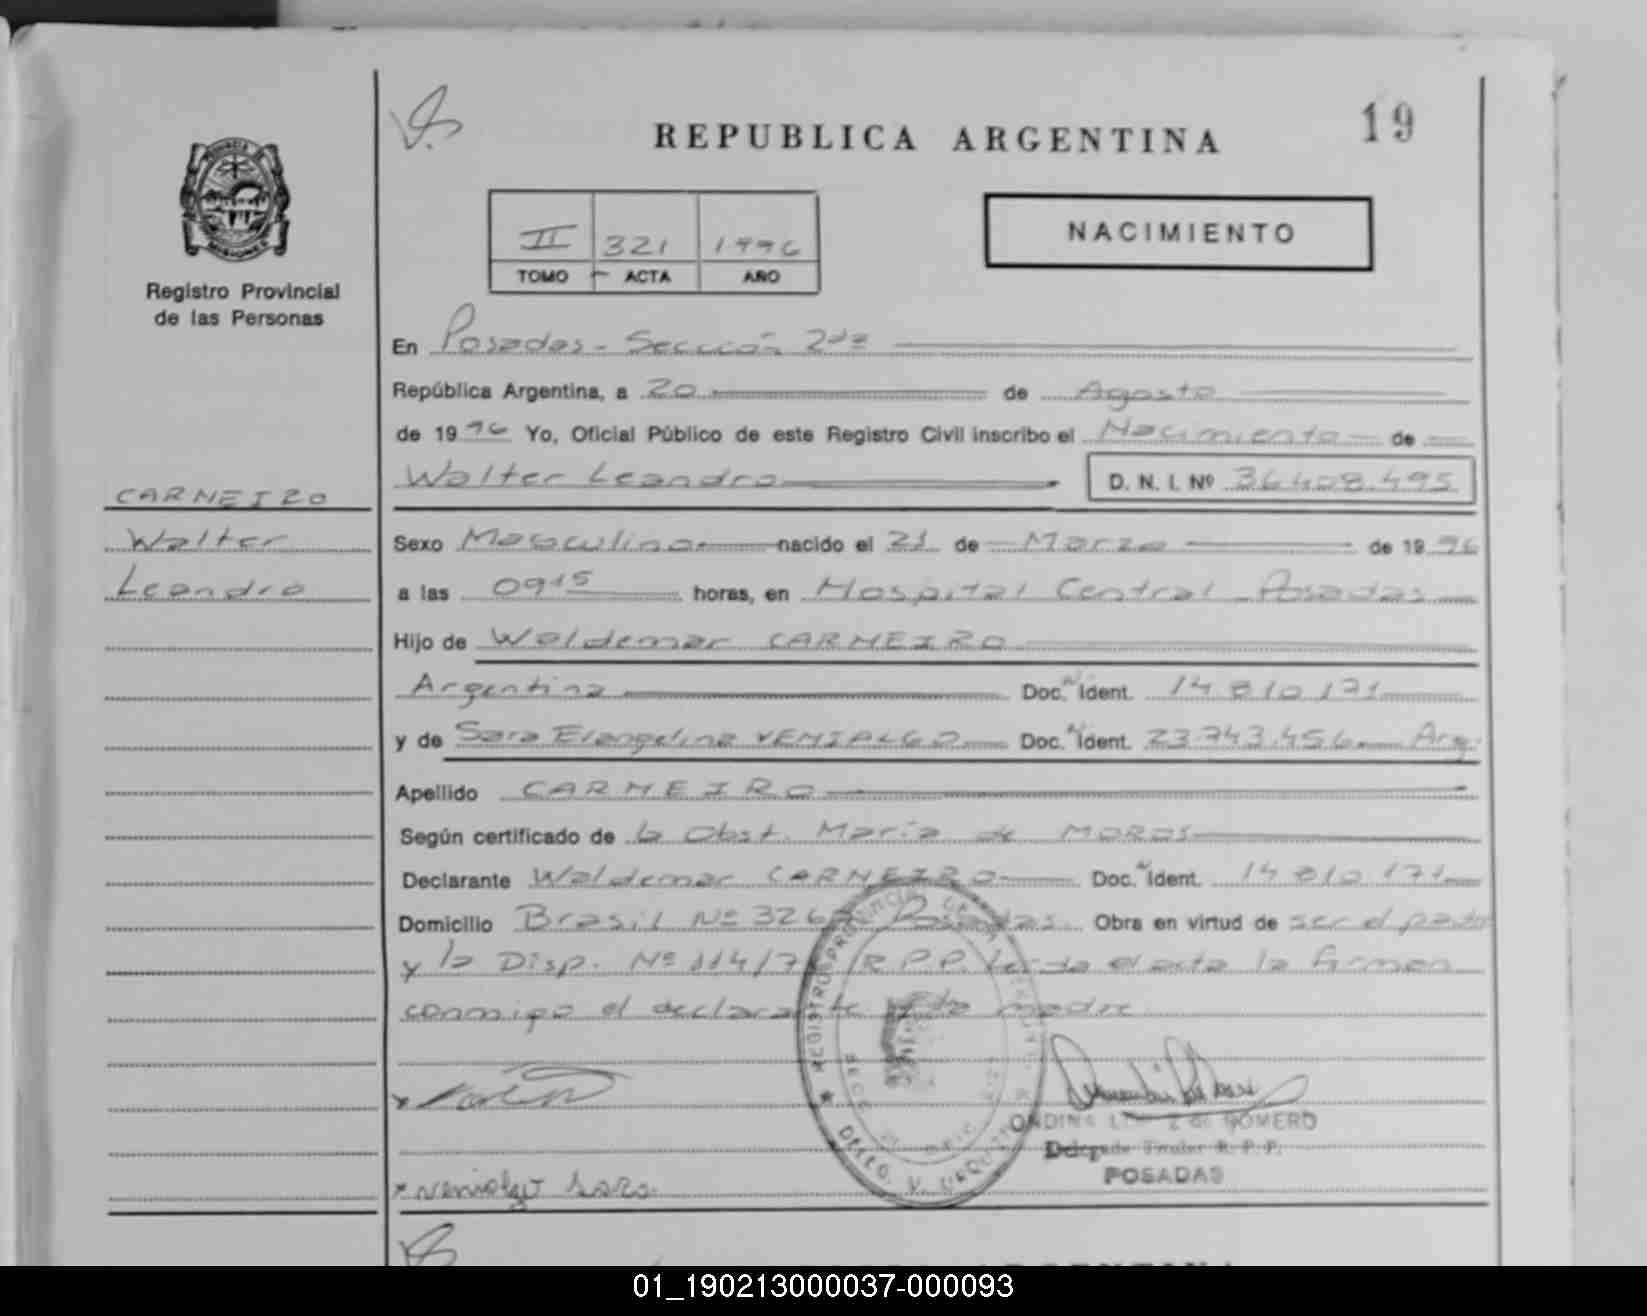 REPUBLICA ARGENTINA
19
II 321 1996
TOMO ACTA AÑO
NACIMIENTO
Registro Provincial
de las Personas
En Posadas - Sección 2da
República Argentina, a 20 de Agosto
de 19 96 Yo, Oficial Público de este Registro Civil inscribo el Nacimiento de
Walter Leandro D. N. I. Nº 36.408.495
CARNEIRO
Walter
Leandro
Sexo Masculino nacido el 21 de Marzo de 19 96
a las 09 15 horas, en Hospital Central Posadas
Hijo de Waldemar CARNEIRO
Argentina Doc. Nº Ident. 14 810 171
y de Sara Evangelina VENIALGO Doc. Nº Ident. 23.743.456 Arg.
Apellido CARNEIRO
Según certificado de la Obst. María de MOROS
Declarante Waldemar CARNEIRO Doc. Nº Ident. 14 810 171
Domicilio Brasil Nº 326 Posadas. Obra en virtud de ser el padre
y la Disp. Nº 114/7 R.P.P. Leída el acta la firman
conmigo el declarante y la madre
REGISTRO PROVINCIAL DE LAS PERSONAS
Venialgo Sara.
ONDINA DE ROMERO
Delegada Titular R. P. P.
POSADAS
01_190213000037-000093